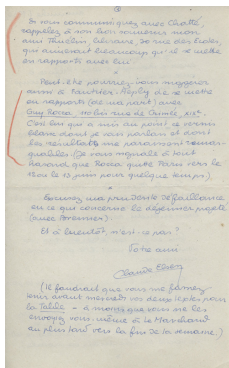 Si vous communiquez avec Chatté,
rappelez à son bon souvenir mon
ami Thublin libraire, 
qui aimerait beaucoup qu'il se mette
en rapports avec lui.
Peut-être pourriez-vous suggérer
aussi à Gauthier-Réply de se mettre
en rapports (de ma part) avec
Guy Rocca
C'est lui qui a mis au point ce vernis
blanc dont je vous parlais et dont
les résultats me paraissent remar-
quables. (Je vous signale à tout
hasard que Rocca quitte Paris vers le
10 ou le 15 juin pour quelque temps).
Excusez ma précédente défaillance
en ce qui concerne le déjeuner projeté
(avec
Et à bientôt, n'est-ce pas?
Votre ami
Claude
(Il faudrait que vous me fassiez
tenir avant mercredi vos deux textes pour
la Table - à moins que vous ne les
envoyiez vous-même à Le Marchand
au plus tard vers la fin de la semaine.)